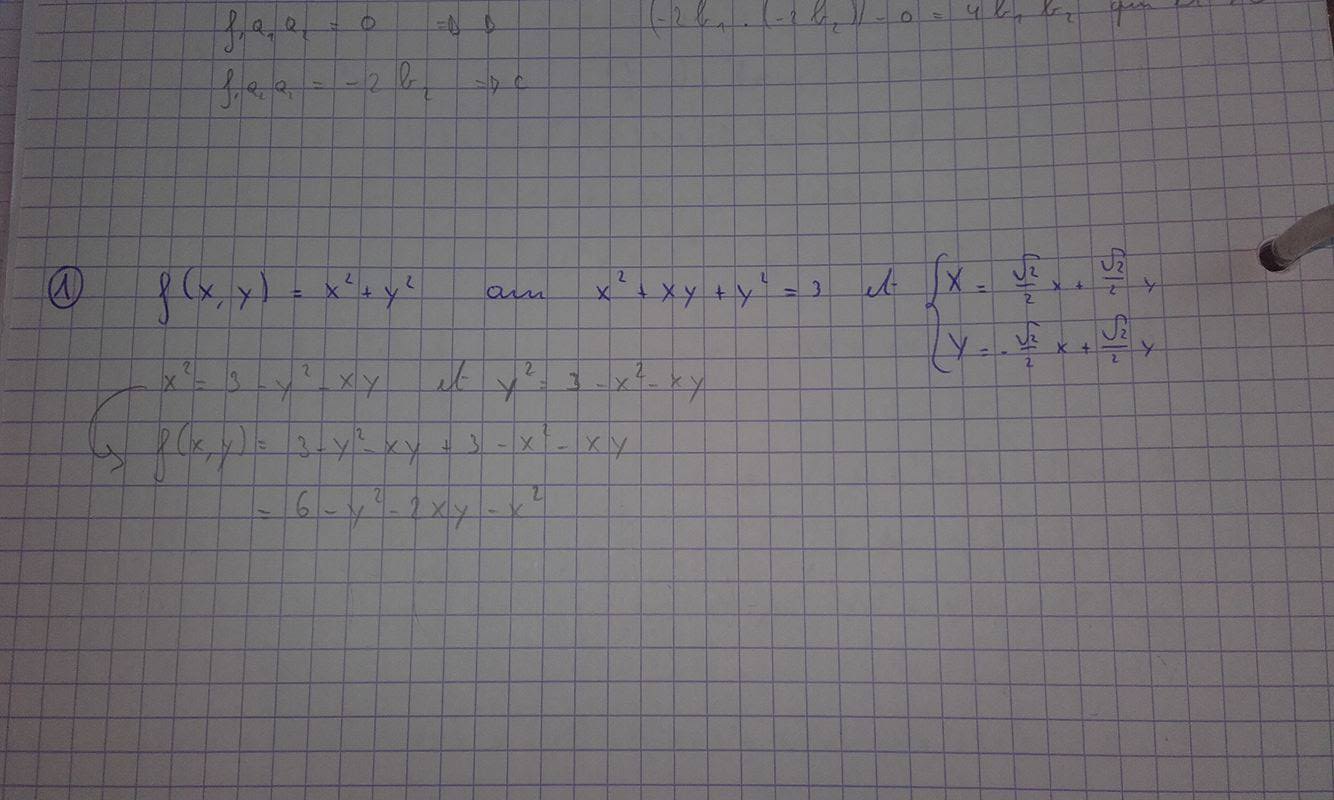 f, a₁ a₂ = 0 ⇒
(-2 b₁ . (-2 b₂)) - 0 = 4 b₁ b₂
= -2 b₂ ⇒ C
① f(x, y) = x² + y² x² + xy + y² = 3 et { X = √2/2 x + √2/2 y
Y = - √2/2 x + √2/2 y
x² = 3 - y² - xy et y² = 3 - x² - xy
f(x, y) = 3 - y² - xy + 3 - x² - xy
= 6 - y² - 2xy - x²